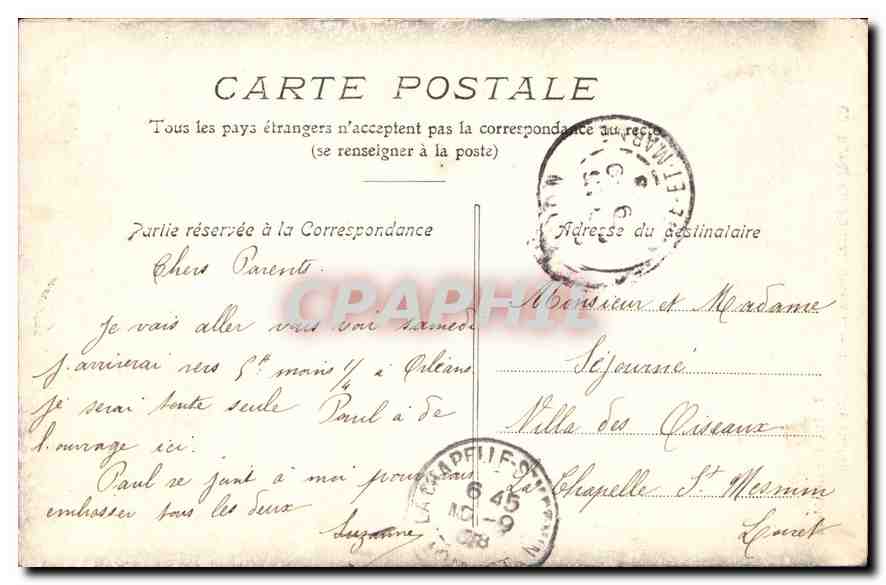 CARTE POSTALE
Tous les pays étrangers n'acceptent pas la correspondance au recto
(se renseigner à la poste)
Partie réservée à la Correspondance
Adresse du destinataire
Chers Parents.
Je vais aller vous voir samedi
j'arriserai vers 5h moins 1/4 à Orléans
je serai toute seule Paul a de
l'ouvrage ici.
Paul se joint à moi pour vous
embrasser tous les deux
Suzanne
Monsieur et Madame
Séjourné
Villa des Oiseaux
La Chapelle St Mesmin
Loiret
CPAPHIL
ET-MARNE
LA CHAPELLE-ST-MESMIN
6 45
9
08